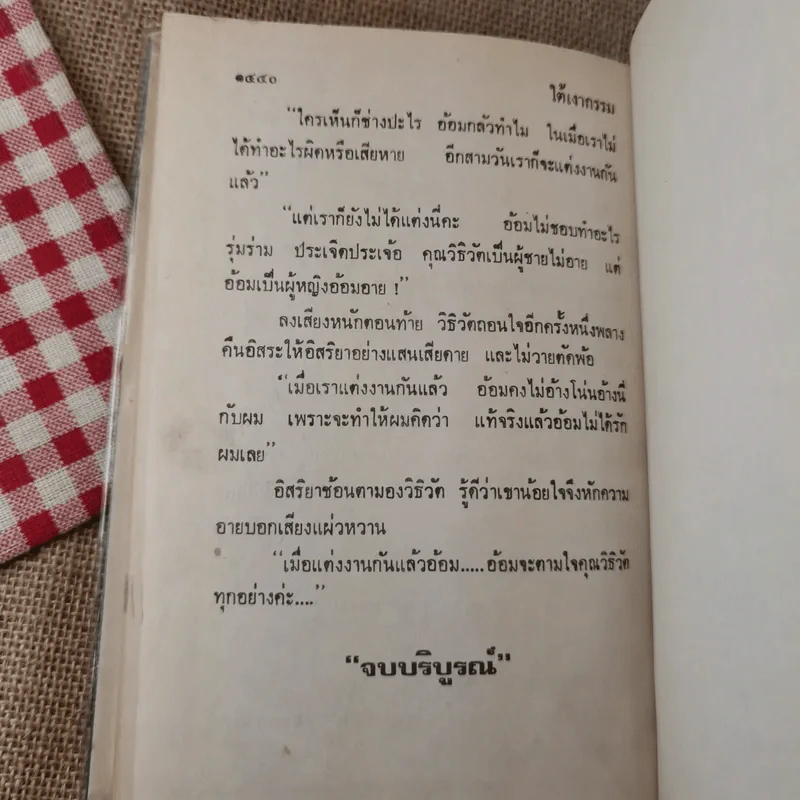 ๑๔๔๐
ใต้เงากรรม
“ใครเห็นก็ช่างปะไร อ้อมกลัวทำไม ในเมื่อเราไม่
ได้ทำอะไรผิดหรือเสียหาย อีกสามวันเราก็จะแต่งงานกัน
แล้ว”
“แต่เราก็ยังไม่ได้แต่งนี่คะ อ้อมไม่ชอบทำอะไร
รุ่มร่าม ประเจิดประเจ้อ คุณวิธิวัตเป็นผู้ชายไม่อาย แต่
อ้อมเป็นผู้หญิงอ้อมอาย !”
ลงเสียงหนักตอนท้าย วิธิวัตถอนใจอีกครั้งหนึ่งพลาง
คืนอิสระให้อิสริยาอย่างแสนเสียดาย และไม่วายตัดพ้อ
“เมื่อเราแต่งงานกันแล้ว อ้อมคงไม่อ้างโน่นอ้างนี่
กับผม เพราะจะทำให้ผมคิดว่า แท้จริงแล้วอ้อมไม่ได้รัก
ผมเลย”
อิสริยาช้อนตามองวิธิวัต รู้ดีว่าเขาน้อยใจจึงหักความ
อายบอกเสียงแผ่วหวาน
“เมื่อแต่งงานกันแล้วอ้อม.....อ้อมจะตามใจคุณวิธิวัต
ทุกอย่างค่ะ....”
“จบบริบูรณ์”